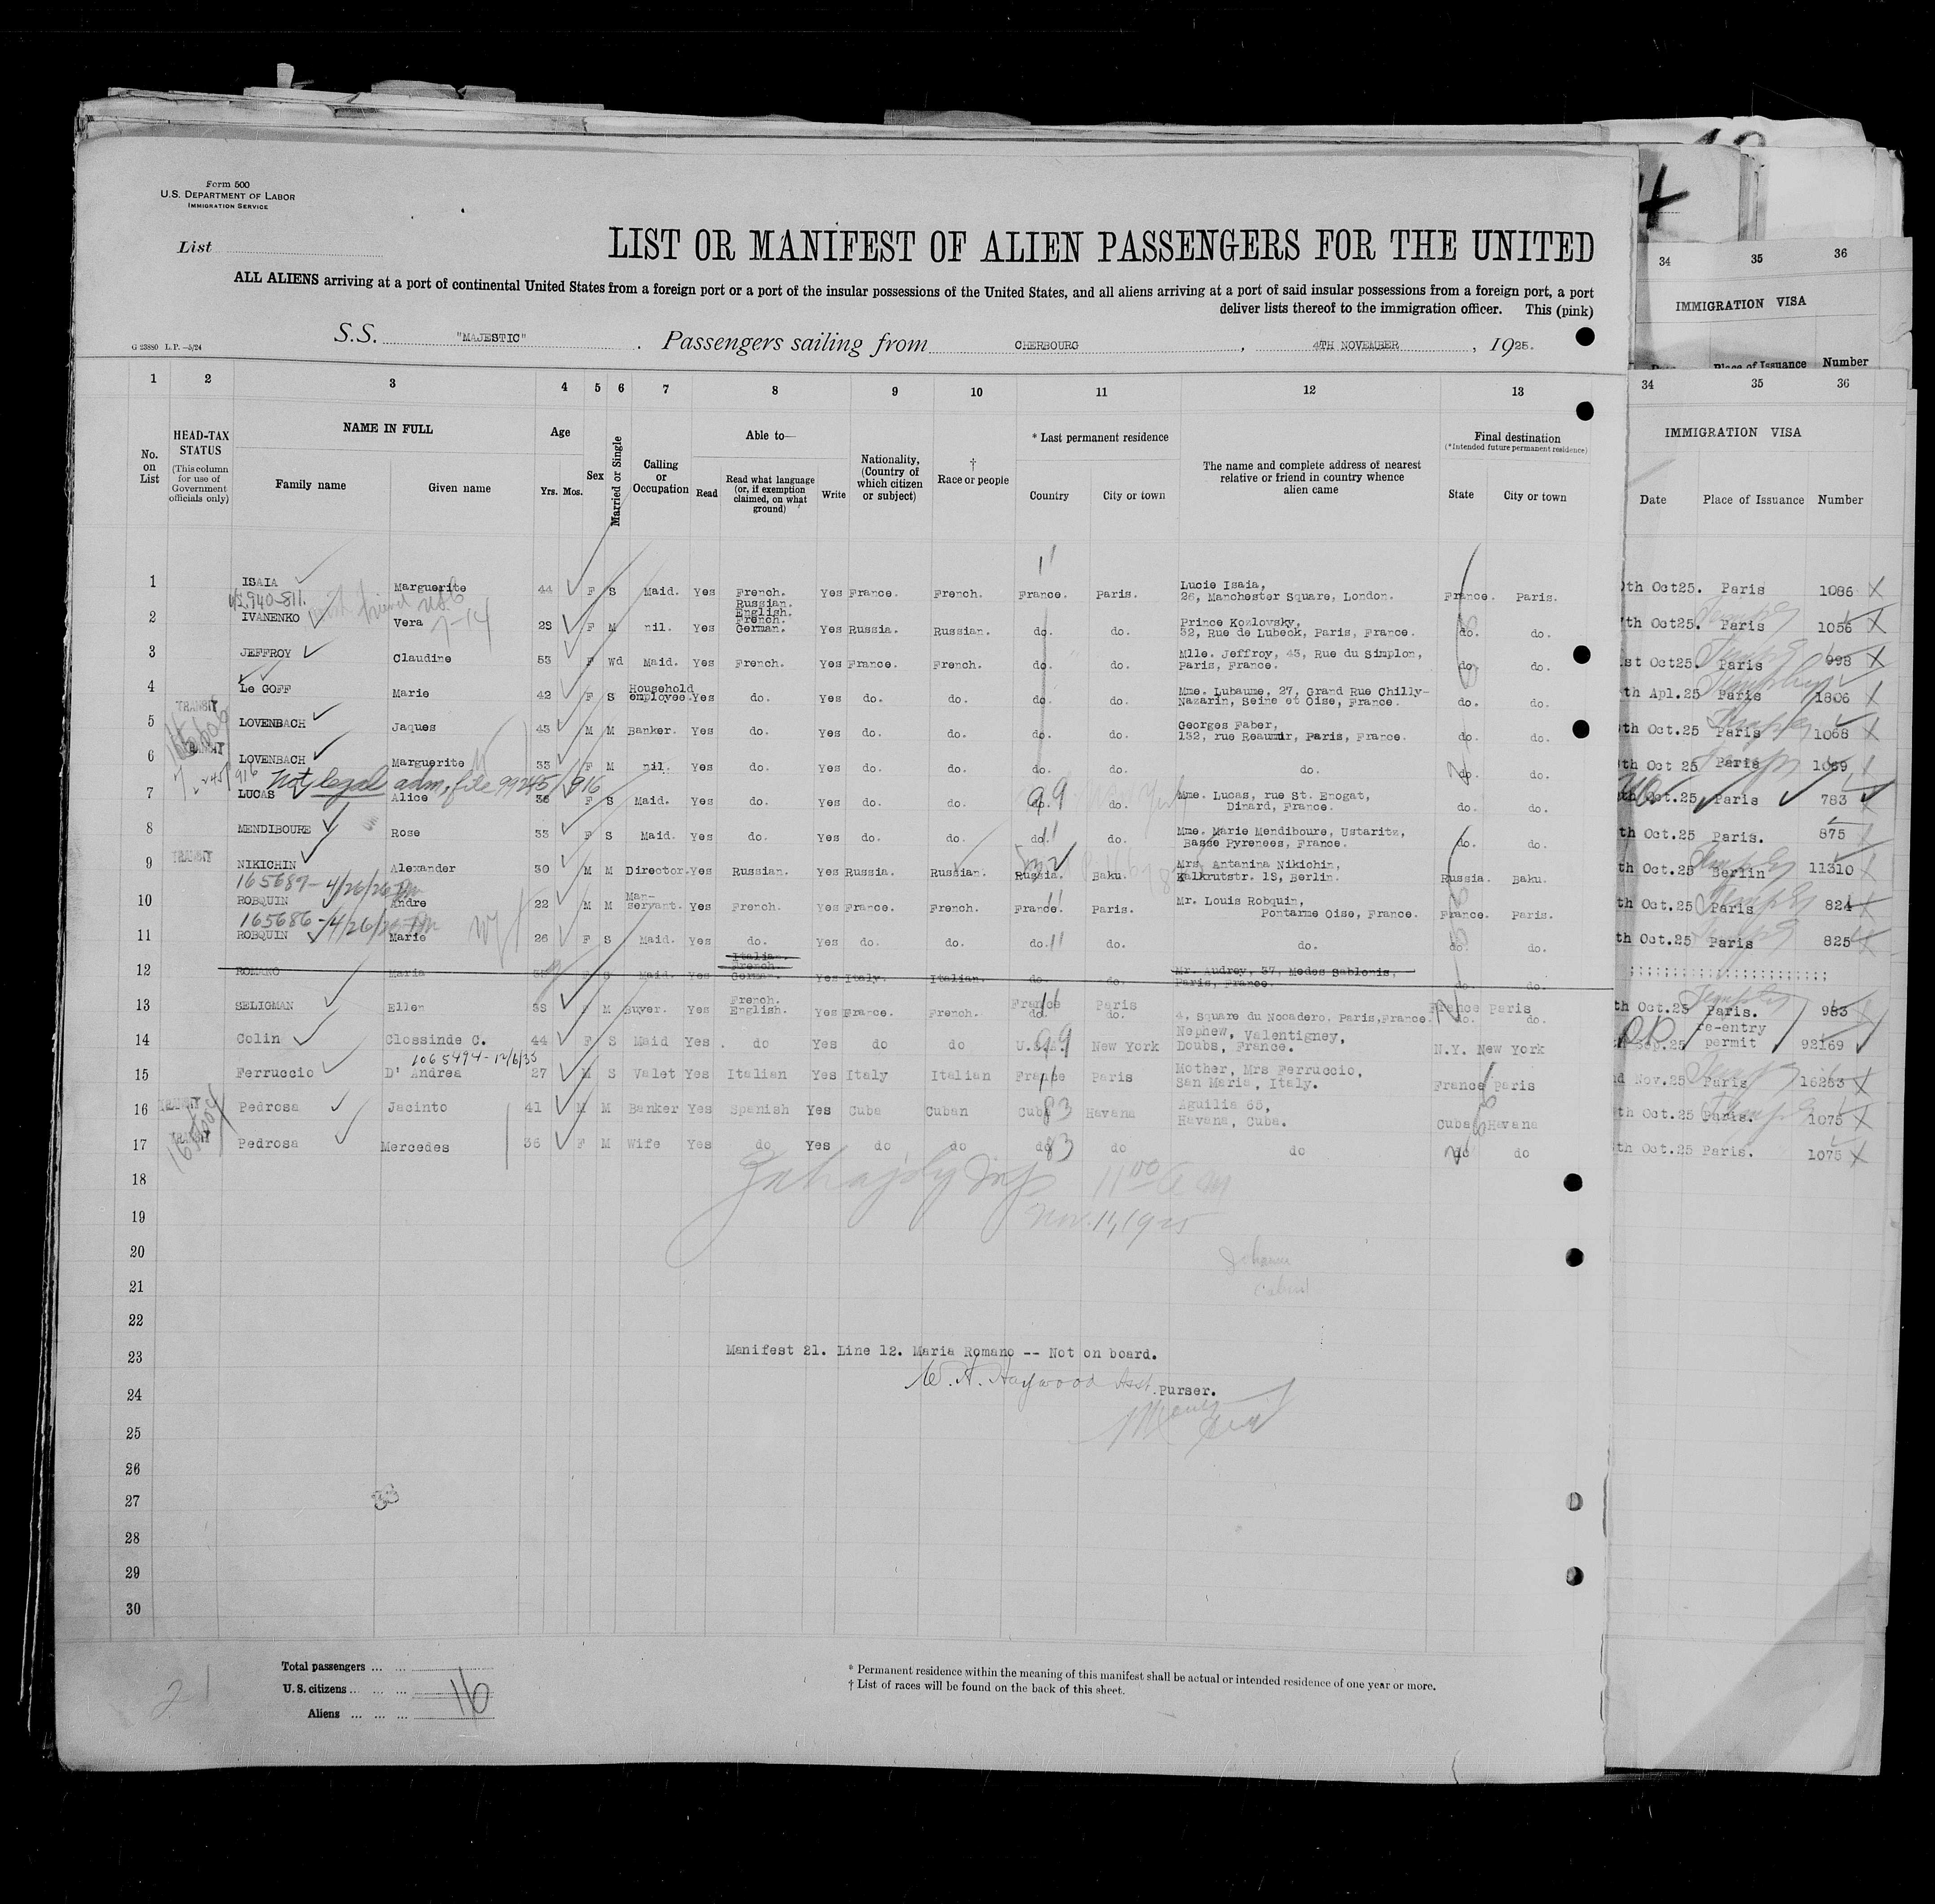 Form 500
U.S. DEPARTMENT OF LABOR
IMMIGRATION SERVICE
List
LIST OR MANIFEST OF ALIEN PASSENGERS FOR THE UNITED
ALL ALIENS arriving at a port of continental United States from a foreign port or a port of the insular possessions of the United States, and all aliens arriving at a port of said insular possessions from a foreign port, a port
deliver lists thereof to the immigration officer. This (pink)
G 23880 L.P.—5/24
S.S. "MAJESTIC" . Passengers sailing from CHERBOURG , 4TH NOVEMBER , 1925.
34 35 36
IMMIGRATION VISA
Place of Issuance Number
1 2 3 4 5 6 7 8 9 10 11 12 13 34 35 36
No. on List
HEAD-TAX STATUS
(This column for use of Government officials only)
NAME IN FULL
Family name Given name
Age
Yrs. Mos.
Sex
Married or Single
Calling or Occupation
Able to—
Read
Read what language (or, if exemption claimed, on what ground)
Write
Nationality, (Country of which citizen or subject)
† Race or people
* Last permanent residence
Country City or town
The name and complete address of nearest relative or friend in country whence alien came
Final destination
(*Intended future permanent residence)
State City or town
IMMIGRATION VISA
Date Place of Issuance Number
1 ISAIA Marguerite 44 F S Maid. Yes French. Yes France. French. France. Paris. Lucie Isaia, 26, Manchester Square, London. France. Paris. th Oct25. Paris 1086
2 IVANENKO Vera 28 F M nil. Yes Russian. English. French. German. Yes Russia. Russian. do. do. Prince Kozlovsky, 32, Rue de Lubeck, Paris, France. do. do. th Oct25. Paris 1056
3 JEFFROY Claudine 53 F Wd Maid. Yes French. Yes France. French. do. do. Mlle. Jeffroy, 43, Rue du Simplon, Paris, France. do. do. st Oct25. Paris 998
4 Le GOFF Marie 42 F S Household employee. Yes do. Yes do. do. do. do. Mme. Lubaume, 27, Grand Rue Chilly-Nazarin, Seine et Oise, France. do. do. th Apl.25 Paris 1806
TRANSIT
5 LOVENBACH Jaques 43 M M Banker. Yes do. Yes do. do. do. do. Georges Faber, 132, rue Reaumur, Paris, France. do. do. th Oct.25 Paris 1068
TRANSIT
6 LOVENBACH Marguerite 33 F M nil. Yes do. Yes do. do. do. do. do. do. do. th Oct 25 Paris 1069
Not legal adm, file 99245/916
7 LUCAS Alice 36 F S Maid. Yes do. Yes do. do. do. do. Mme. Lucas, rue St. Enogat, Dinard, France. do. do. th Oct.25 Paris 783
8 MENDIBOURE Rose 33 F S Maid. Yes do. Yes do. do. do. do. Mme. Marie Mendiboure, Ustaritz, Basse Pyrenees, France. do. do. th Oct.25 Paris. 875
TRANSIT
9 NIKICHIN Alexander 30 M M Director. Yes Russian. Yes Russia. Russian. Russia. Baku. Mrs. Antanina Nikichin, Kalkrutstr. 18, Berlin. Russia. Baku. th Oct.25 Berlin 11310
165687-4/26/26
10 ROBQUIN Andre 22 M M Man-servant. Yes French. Yes France. French. France. Paris. Mr. Louis Robquin, Pontarme Oise, France. France. Paris. th Oct.25 Paris 824
165686-4/26/26
11 ROBQUIN Marie 26 F S Maid. Yes do. Yes do. do. do. do. do. do. do. th Oct.25 Paris 825
12 ROMANO Maria F S Maid. Yes Italian. French. German. Yes Italy. Italian. do. do. Mr. Audrey, 37, Medes Sablonis, Paris, France. do. do.
13 SELIGMAN Ellen 38 F M Buyer. Yes French. English. Yes France. French. France do. Paris do. 4, Square du Nocadero, Paris,France. France Paris do. do. th Oct.25 Paris. 983
14 Colin Clossinde C. 44 F S Maid Yes do Yes do do U.S.A. New York Nephew, Valentigney, Doubs, France. N.Y. New York Sep.25 re-entry permit 92169
1065494-12/6/35
15 Ferruccio D' Andrea 27 M S Valet Yes Italian Yes Italy Italian France Paris Mother, Mrs Ferruccio, San Maria, Italy. France Paris d Nov.25 Paris 16253
TRANSIT
16 Pedrosa Jacinto 41 M M Banker Yes Spanish Yes Cuba Cuban Cuba 83 Havana Aguilia 65, Havana, Cuba. Cuba Havana th Oct.25 Paris. 1075
TRANSIT
17 Pedrosa Mercedes 36 F M Wife Yes do Yes do do do 83 do do do do th Oct.25 Paris. 1075
18
11 00 AM
19
Nov. 11, 1925
20
21
22
23 Manifest 21. Line 12. Maria Romano -- Not on board.
24 W. A. Haywood Asst. Purser.
25
26
27
28
29
30
Total passengers
U.S. citizens
Aliens
16
21
* Permanent residence within the meaning of this manifest shall be actual or intended residence of one year or more.
† List of races will be found on the back of this sheet.